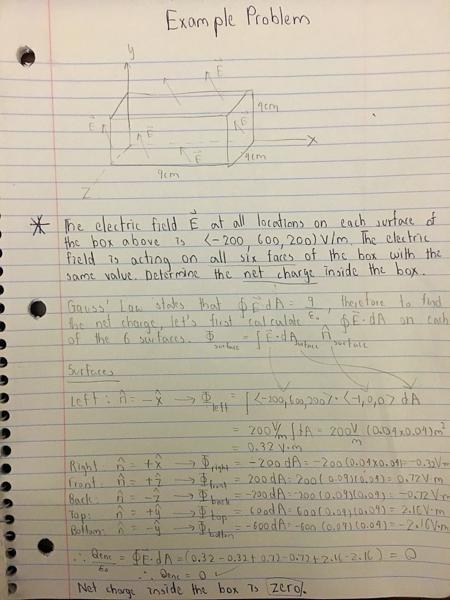 Example Problem
y
E
E
4cm
E
E
E
4cm
x
9cm
z
* The electric field E⃗ at all locations on each surface of
the box above is <-200, 600, 200> V/m. The electric
field is acting on all six faces of the box with the
same value. Determine the net charge inside the box.
Gauss' Law states that ∮E⃗·dA = q/ε₀, therefore to find
the net charge, let's first calculate ∮E⃗·dA on each
of the 6 surfaces. Φsurface = ∫E⃗·dAsurface n̂surface
Surfaces
Left: n̂ = -x̂ → Φleft = ∫<-200,600,200>·<-1,0,0> dA
= 200 V/m ∫dA = 200 V/m (0.04x0.04)m²
= 0.32 V·m
Right: n̂ = +x̂ → Φright = -200 dA = -200(0.04x0.04) = -0.32V·m
Front: n̂ = +ẑ → Φfront = 200 dA = 200(0.09)(0.04) = 0.72V·m
Back: n̂ = -ẑ → Φback = -200 dA = -200(0.09)(0.04) = -0.72 V·m
Top: n̂ = +ŷ → Φtop = 600 dA = 600(0.09)(0.04) = 2.16V·m
Bottom: n̂ = -ŷ → Φbottom = -600 dA = -600(0.09)(0.04) = -2.16V·m
∴ Qenc/ε₀ = ∮E·dA = (0.32-0.32+0.72-0.72+2.16-2.16) = 0
∴ Qenc = 0 ✓
Net charge inside the box is zero.